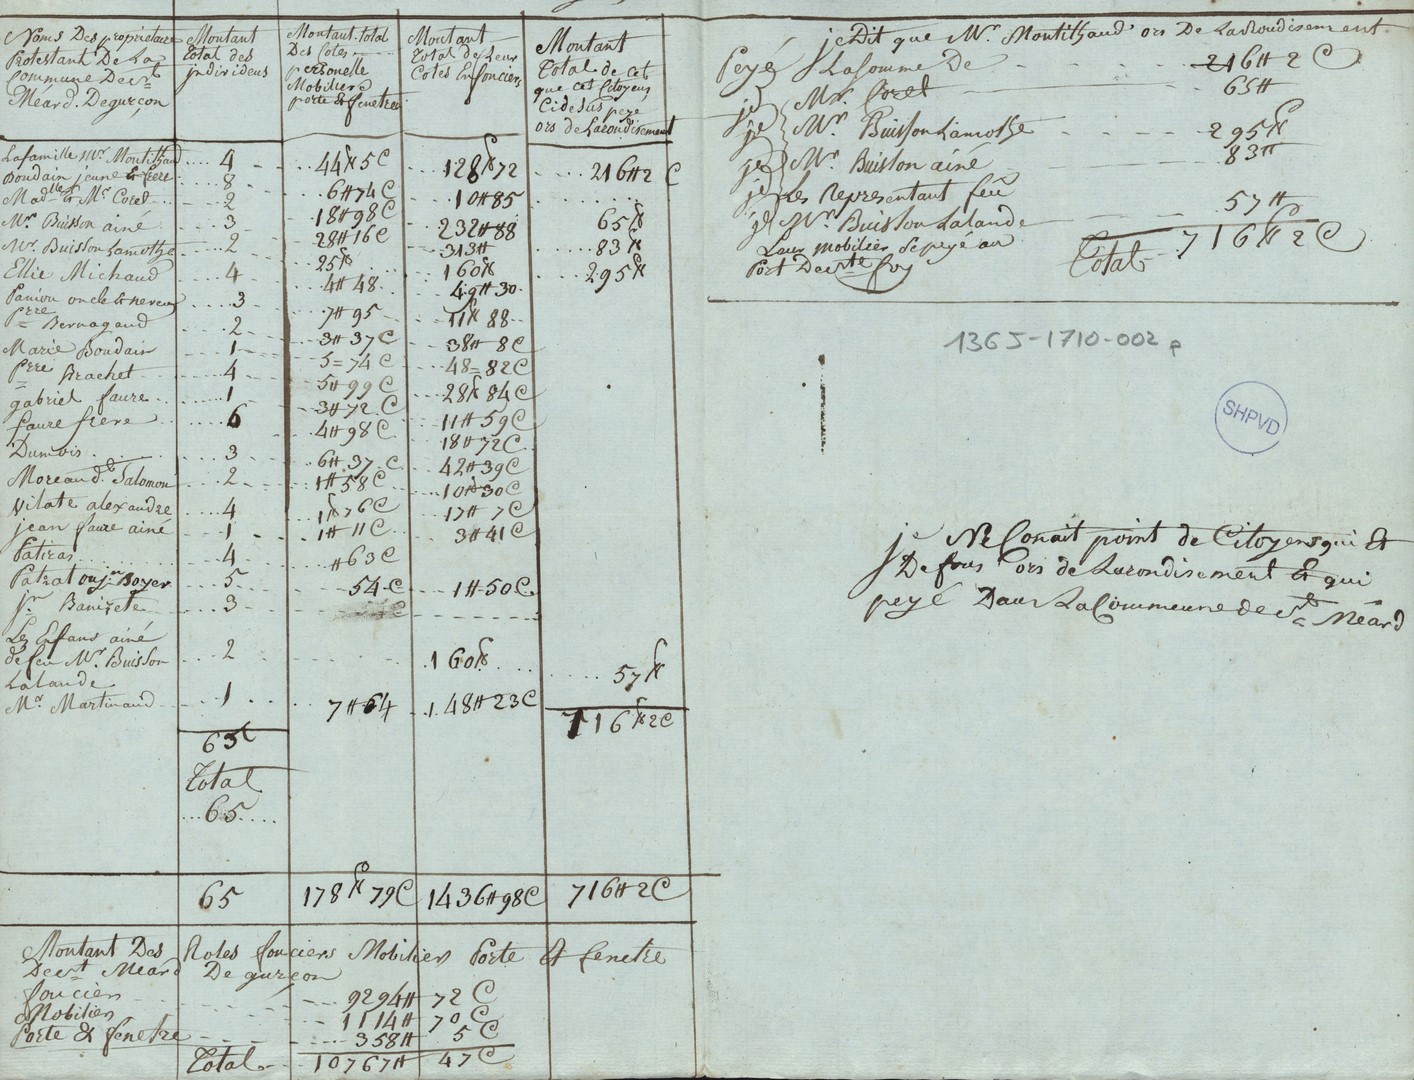 Noms Des propriétaire
Protestant De La
Commune De St
Méard. Degurçon
Montant
total des
jndividens
Montant total
Des Cotes
personelle
Mobiliere
porte & fenetre
Montant
Total de Leur
Cotes Enfonciers
Montant
Total de cet
que cet Citoyens
Cidesus peyé
ors de Larondisement
Lafamille Mr Montilhaud 4 44 5C 128 72 216 2 C
Boudain jeune & frere 8 6 74C 10 85
Madlle & Mr Corel 2 18 98C 232 88 65
Mr Buisson ainé 3 28 16C 313 83
Mr Buisson Lamothe 2 25 160 295
Ellie Michaud 4 4 48 49 30
Paniou oncle & neveux 3 7 95 11 88
Pierre Bernagaud 2 3 37C 38 8C
Marie Boudain 1 5=74C 48=82C
Pierre Brachet 4 5 99C 28 84C
gabriel faure 1 3 72 C 11 59C
faure frere 6 4 98C 18 72C
Dumois 3 6 37 C 42 39C
Moreau dt Salomon 2 1 58C 10 30C
Vilate alexandre 4 1 76C 17 7C
jean faure ainé 1 1 11C 3 41C
Patiras 4 63C
Patrat ou jn Boyer 5 54 C 1 50C
jn Banizete 3
Les Enfans ainé
de feu Mr Buisson 2 160 57
Lalande
Mr Martinaud 1 7 64 148 23C 716 2C
65
Total
65
65 178 79C 1436 98C 716 2C
Montant Des Roles fonciers Mobiliers Porte & fenetre
De St Méard De gurçon
foncier 9294 72 C
Mobilier 1114 70 C
Porte & fenetre 358 5 C
Total 10767 47 C
je Dit que Mr Montilhaud ors De Larondisement
Peyé La Somme De 216 2 C
je Mr Corel 65
je Mr Buisson Lamothe 295
je Mr Buisson ainé 83
je Les Representant feu
je Mr Buisson Lalande 57
Leur mobilier Se peyé au Total 716 2C
Port De Ste foy
1365-1710-002 p
SHPVD
je Ne Conait point de Citoyens qui Et
De fons ors de Larondisement & qui
peyé Dans La Commeune de St Méard